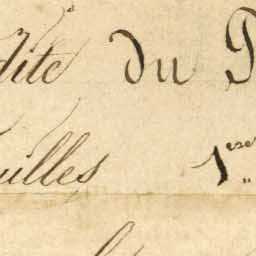 dite du
uilles 1ere